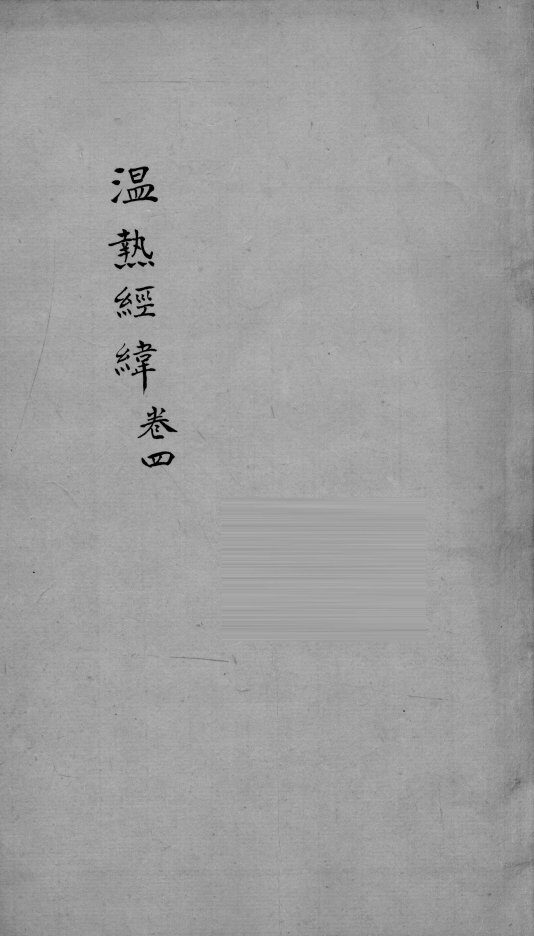 温熱經緯
卷四